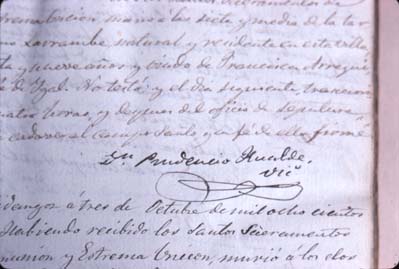 trema Uncion, murió a las siete y media de la tar
Larrambe, natural y residente en esta villa
ta y nueve años y viudo de Francisca Arregui
de Igal. No testó: y el dia siguiente, trascurri
cuatro horas, y despues del oficio de sepultura
cadaver al Campo Santo, y en fé de ello firmé
Dn. Prudencio Ucalde,
Vic.
á tres de Octubre de mil ocho cientos
Habiendo recibido los Santos Sacramentos
munion y Estrema Uncion, murió á las dos